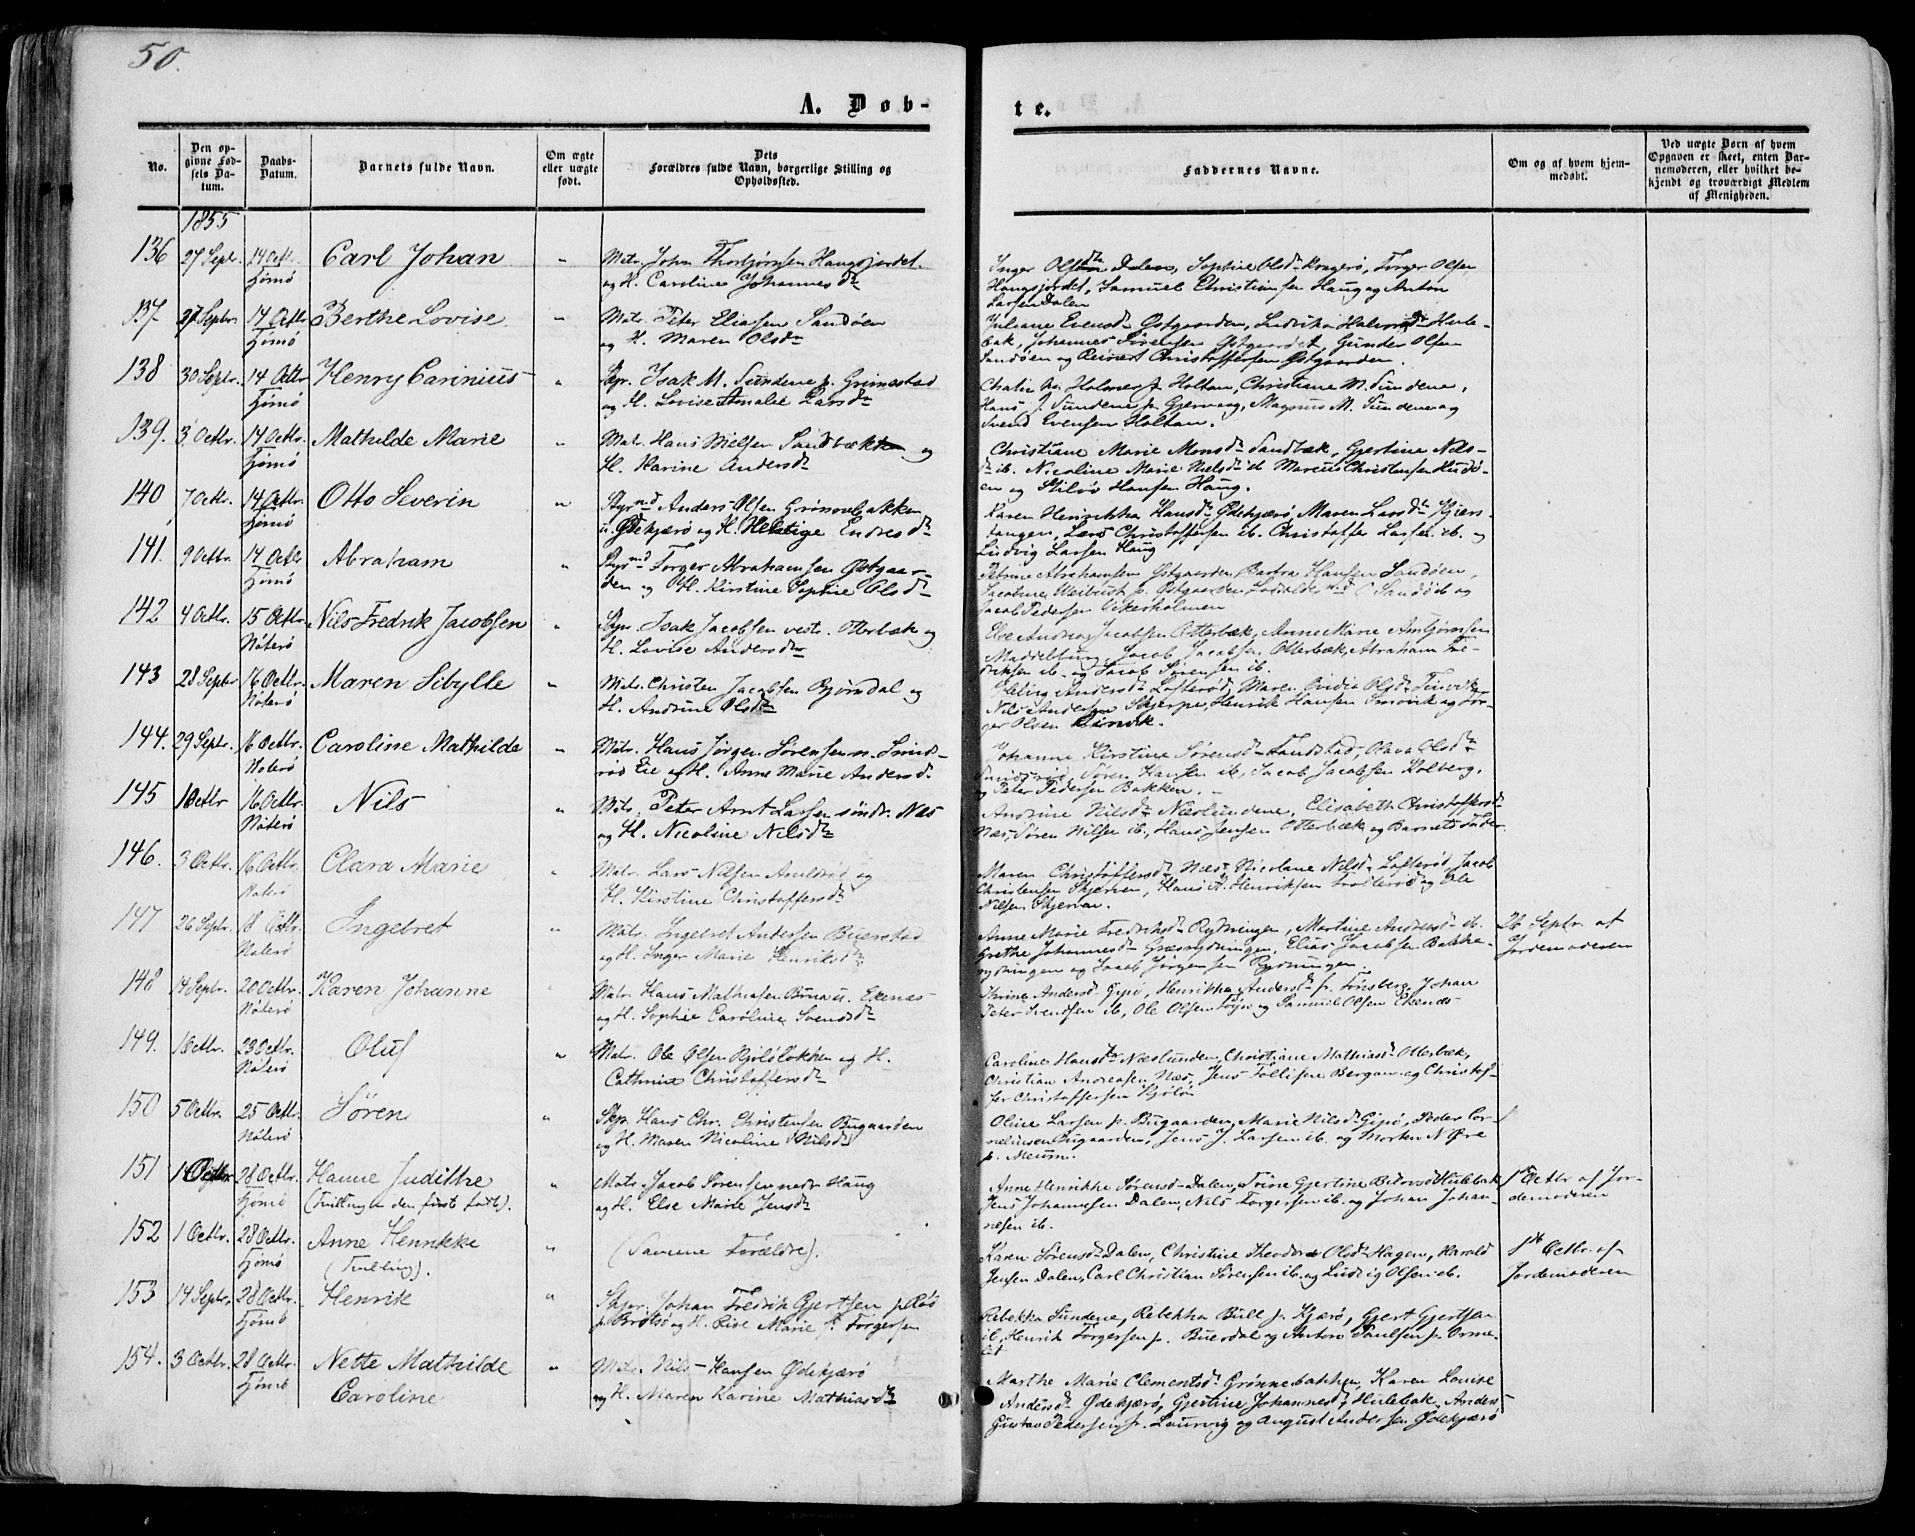 50.
A. Døb-
te.
No.
Den op-
givne Fød-
sels Da-
tum.
Daabs-
Datum.
Barnets fulde Navn.
Om ægte
eller uægte
født.
Dets
Forældres fulde Navn, borgerlige Stilling og
Opholdssted.
Faddernes Navne.
Om og af hvem hjem-
medøbt.
Ved uægte Børn af hvem
Opgaven er skeet, enten Bar-
nemoderen, eller hvilket be-
kjendt og troværdigt Medlem
af Menigheden.
1855
136 27 Septr. 14 Octr. Carl Johan " Matr. John Thorbjørnsen Haugsjordet
Tjømø og H. Caroline Johannesdr
Inger Olsdtr Dalen, Sophie Olsdr Kragerø, Torger Olsen
Haugsjordet, Samuel Christiansen Haug og Anton
Larsen Dalen
137. 27 Septr 14 Octbr Berthe Lovise " Matr. Peter Eliassen Sandøen
Tjømø og H. Maren Olsdr
Juliane Evensdr Østgaarden, Halvorsdr Hule-
bak, Johannes Sørensen Østgaardet, Gunder Olsen
Sandøen og Reinert Christoffersen Østgaarden.
138 30 Septr. 14 Octbr Henry Carinius " Skpr. Isak M. Sundene p. Grimestad
Tjømø og H. Lovise Amalie Larsdr
Holmer p. Holtan, Christiane M. Sundene,
Hans J. Sundene p. Gjervaag, Magnus M. Sundene og
Svend Evensen Holtan.
139. 3 Octbr. 14 Octbr. Mathilde Marie " Matr. Hans Nielsen Sandbæk og
Tjømø H. Karine Andersdr
Christiane Marie Monsdr Sandbæk, Gjertine Nels-
dr ib. Nicoline Marie Nielsdr ib Marcus Christensen Hudø-
en og Hansen Haug.
140 7 Octbr. 14 Octbr. Otto Severin " Styrmd Anders Olsen Grønnebakken
Tjømø u. Ødekjærø og H. Endresdr
Karen Henrikka Hansdr Ødekjærø, Maren Larsdr Kjærs-
tangen, Lars Christoffersen ib. Christoffer Larsen ib. og
Ludvig Larsen Haug
141. 9 Octbr. 14 Octbr Abraham " Styrmd Torger Abrahamsen Østgaar-
Tjømø den og H. Kirstine Sophie Olsdr
Petrine Abrahamsen Østgaarden, Hansen Sandøen,
Jacobine Weibust p. Østgaarden Sandø ib og
Jacob Pedersen
142 4 Octbr. 15 Octbr Nils Fredrik Jacobsen " Skpr. Isak Jacobsen vestr. Otterbæk og
Nøterø H. Lovise Andersdr
Else Andrea Jacobsen Otterbæk, Anne Marie Arnbjørnsen
Jacob Jacobsen Otterbæk, Abraham Fre-
driksen ib. og Jacob Sørensen ib.
143 28 Septr 16 Octbr. Maren Sibylle " Matr. Christen Jacobsen Bjørndal og
Nøterø H. Andrine Olsdr
Andersdr Lofterød, Maren Olsdr Tinvik,
Nils Andersen Skjerpe, Henrik Hansen og Tor-
ger Olsen
144. 29 Septr. 16 Octbr. Caroline Mathilde " Matr. Hans Jørgen Sørensen n. Smids-
Nøterø rød Eie og H. Anne Marie Andersd.
Johanne Kirstine Sørensdr Olava Olsdr
Smidsrød, Søren Hansen ib, Jacob Jacobsen Kolberg,
og Peter Pedersen Bakken.
145 1 Octbr 16 Octbr. Nils " Matr. Peter Arnt Larsen søndr. Næs
Nøterø og H. Nicoline Nilsdr
Andrine Nilsdr Næslundene, Elisabeth Christoffersdr
Næs, Søren Nilsen ib, Hans Jensen Otterbæk og Barnets Fader.
146. 3 Octbr. 16 Octbr. Clara Marie " Matr. Lars Nielsen og
Nøterø H. Kirstine Christoffersdr
Maren Christoffersdr Næs, Nicoline Nilsdr Lofterød, Jacob
Christensen Skjerven, Hans A. Henriksen og Ole
Nilsen Skjervn.
147 26 Septr. 18 Octbr. Ingebret " Matr. Ingebret Andersen Buerstad
Nøterø og H. Inger Marie Henriksdr
Anne Marie Fredriksdr Rydningen, Martine Andersdr ib.
Grethe Johannesdr Græsrydningen, Elias Jacobsen Bakke-
rydningen og Jacob Jørgensen Rydningen.
26 Septr. af
Jordemoderen
148 14 Septr. 20 Octbr. Karen Johanne " Matr. Hans Mathiasen Bruun u. Ekenæs
Nøterø og H. Sophie Caroline Svendsdr
Andersdr Gipø, Henrikka Andersdr fr. Tønsberg, Johan
Peter Svendsen ib, Ole Olsen Føyn og Samuel Olsen Ekenæs
149. 1 Octbr. 23 Octbr. Oluf " Matr. Ole Olsen Kjøløløkken og H.
Nøterø Cathrine Christoffersdr
Caroline Hansdtr Næslunden, Christiane Mathiasdr Otterbæk,
Christian Andreasen Næs, Jens Tollifsen Bergan og Christof-
fer Christoffersen Kjøløe
150 5 Octbr. 25 Octbr. Søren " Skpr. Hans Chr. Christensen Bugaarden
Nøterø og H. Maren Nicoline Nilsdr
Oline Larsen p. Bugaarden, Marie Nilsdr Gipø, Peder Cor-
neliussen Bugaarden, Jens J. Larsen ib. og Morten N. Øre
p. Meum.
151 1 Octbr 28 Octbr. Hanne Judithe " Matr. Jacob Sørensen nedr. Haug
Tjømø (Tvilling den først født). og H. Else Marie Jensdr
Anne Henrikke Sørensdr Dalen, Gjertine Hulebak
Jens Johannesen Dalen, Nils Torgersen ib. og Johan Johan-
nesen ib.
1st Octbr af Jor-
demoderen
152 1 Octbr. 28 Octbr. Anne Henrikke " (Samme Forældre).
Tjømø (Tvilling).
Karen Sørensdr Dalen, Christine Theodora Olsdr Hagen, Harald
Jensen Dalen, Carl Christian Sørensen ib. og Ludvig Olsen ib.
1st Octbr. af
Jordemoderen
153 14 Septr. 28 Octbr. Henrik " Skpr. Johan Fredrik Gjertsen p. Røs
Tjømø og H. Marie f. Torgersen
Rebekka Sundene, Rebekka Bull p. Kjærø, Gjert Gjertsen
ib, Henrik Torgersen p. Buerdal og Anton Paulsen p. Orme-
let
154. 3 Octbr. 28 Octbr. Nette Mathilde " Matr. Nils Hansen Ødekjærø
Tjømø Caroline og H. Maren Karine Mathiasdr
Marthe Marie Clementsdr Grønnebakken, Karen Louise
Andersdr Ødekjærø, Gjertine Johannesdr Hulebak, Anders
Gustav Pedersen fr. Laurvig og August Andersen Ødekjærø